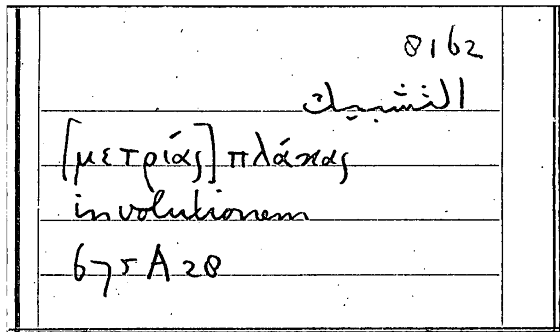 8162
التشبيك
[μετρίας] πλάκας
involutionem
675A28